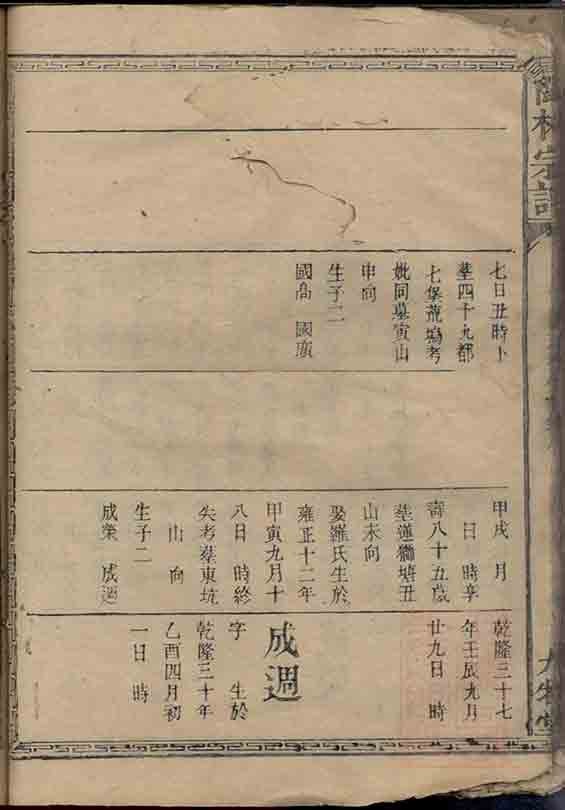 林宗譜
七日丑時卜
塟四十九都
七堡蔴塢考
妣同墓寅山
申向
生子二
國高 國
甲戌 月
日 時享
壽八十五歲
塟蓮獅塘丑
山未向
娶羅氏生於
雍正十二年
甲寅九月十
八日 時終
失考塟東坑
山 向
生子二
成榮 成週
乾隆三十七
年壬辰九月
廿九日 時
成週
字 生於
乾隆三十年
乙酉四月初
一日 時